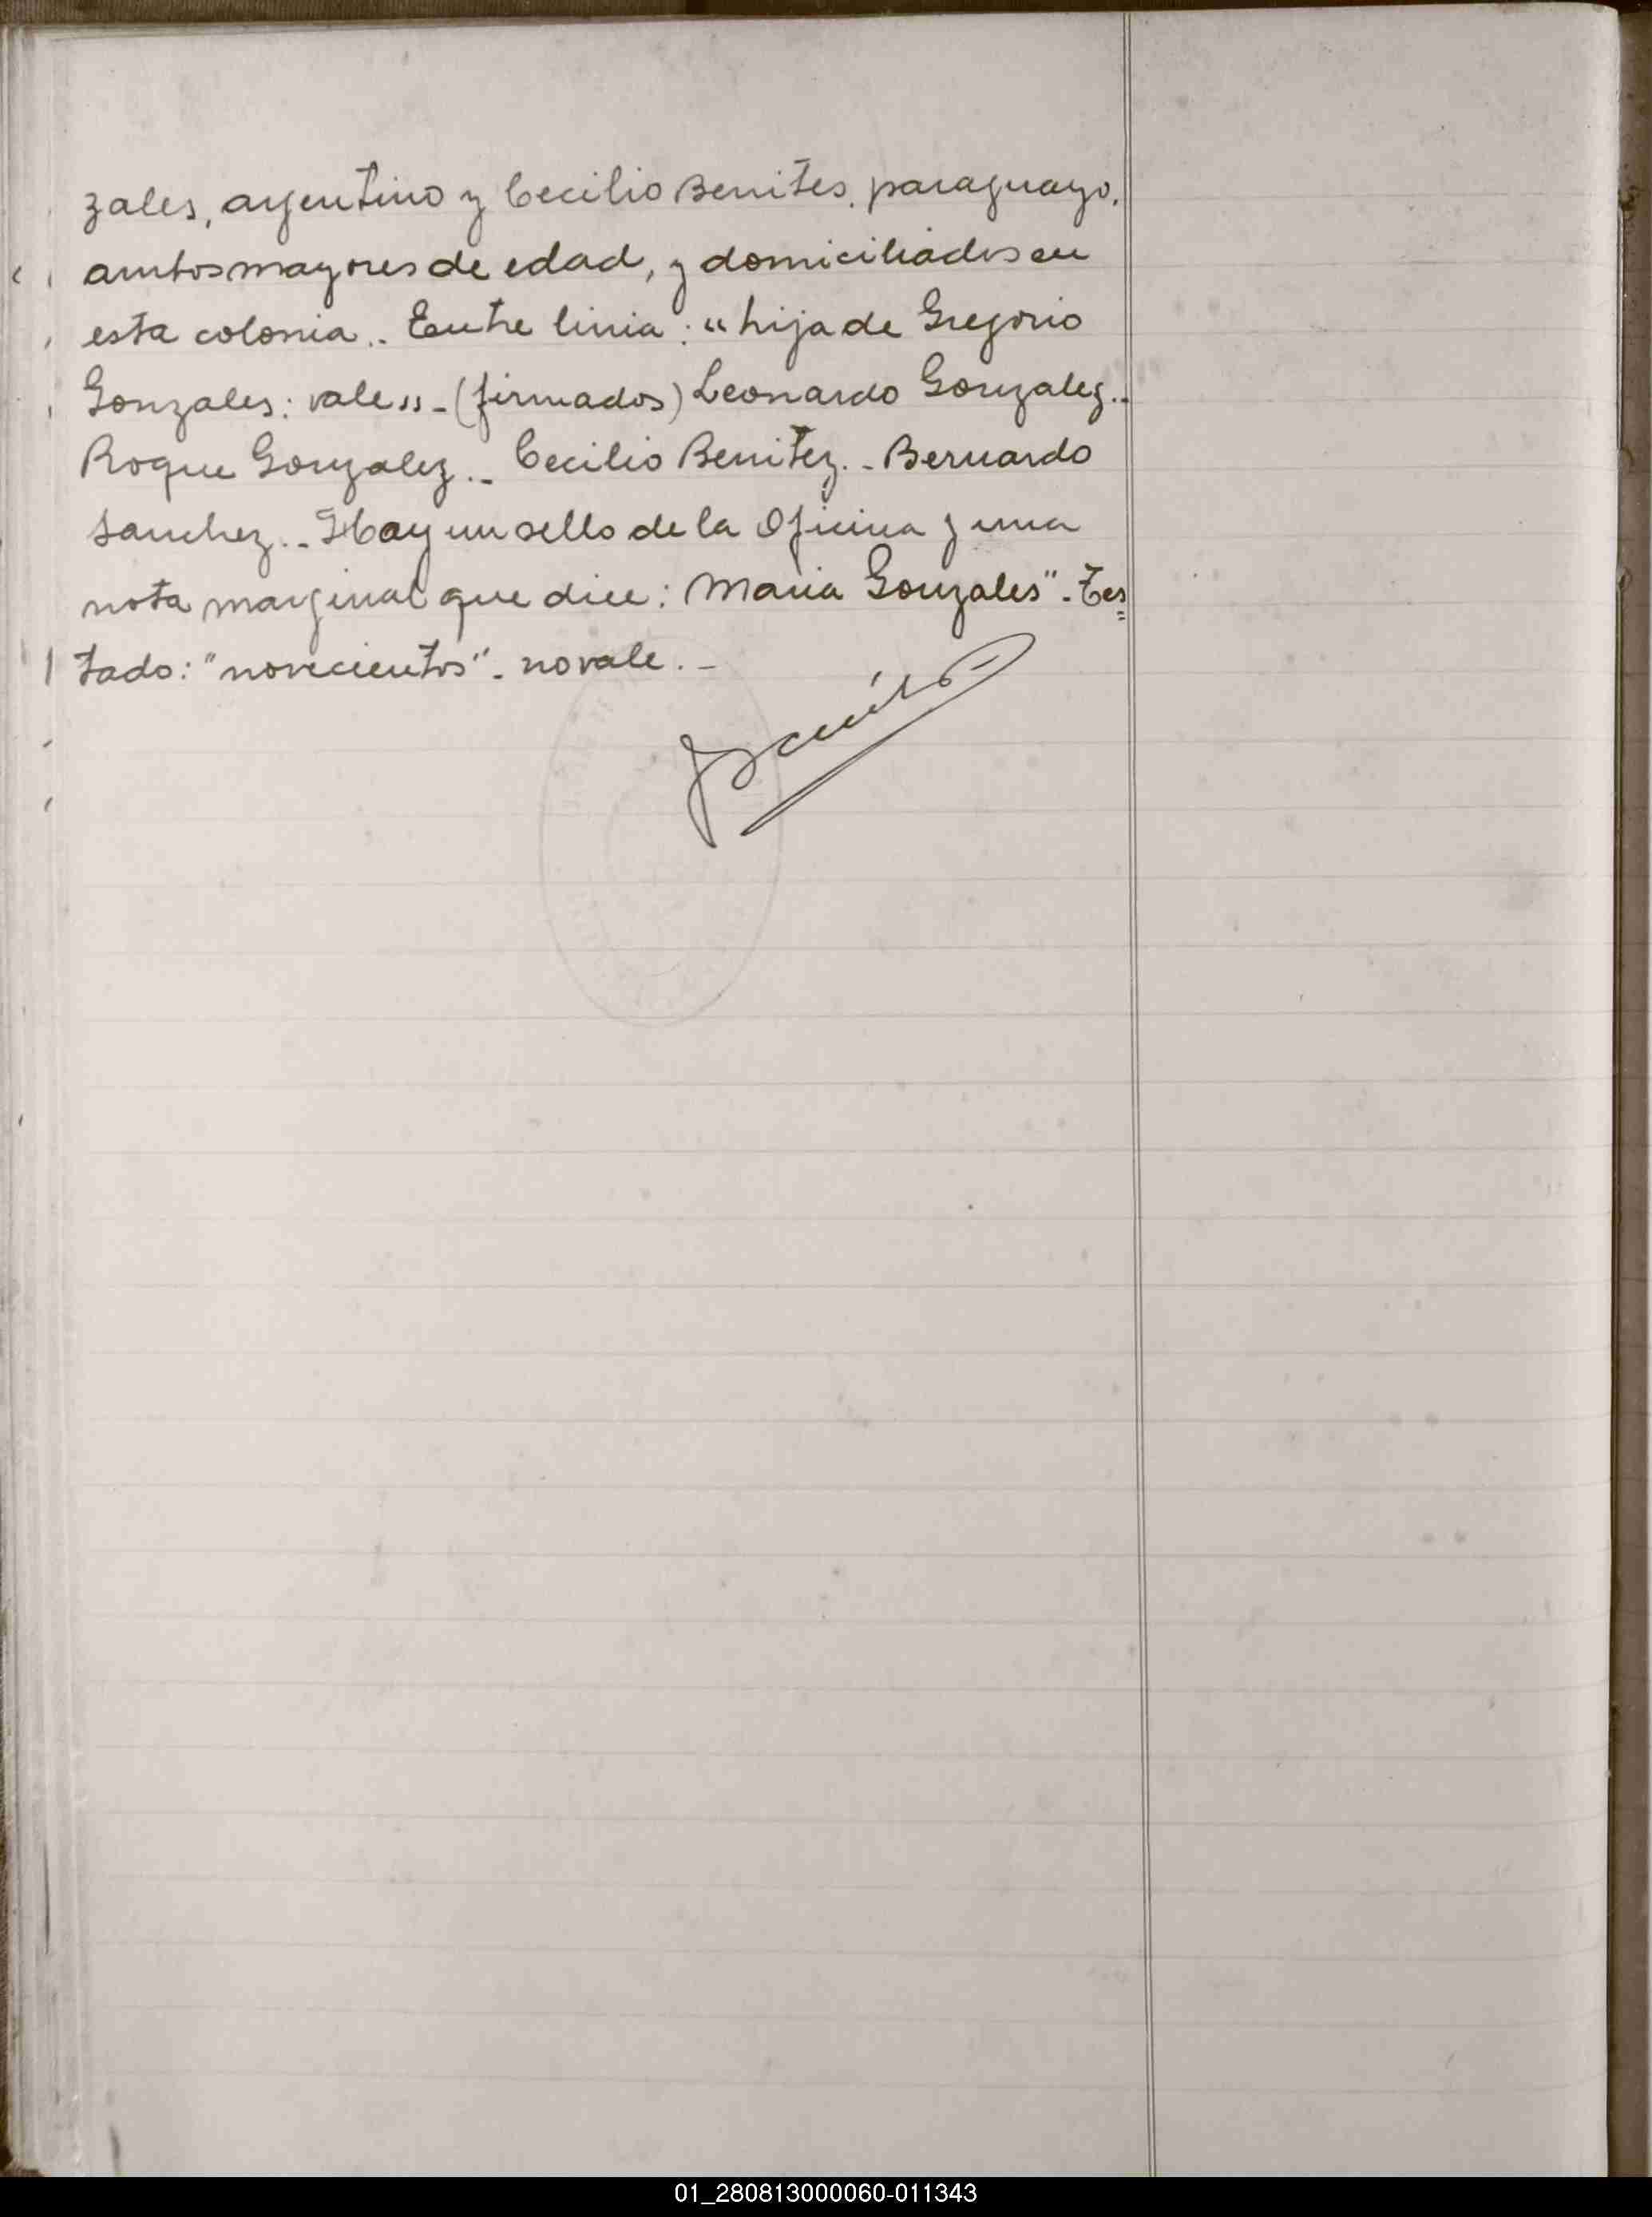 zales, argentino y Cecilio Benites, paraguayo,
ambos mayores de edad, y domiciliados en
esta colonia.. Entre linia: "hija de Gregorio
Gonzales: vale" - (firmados) Leonardo Gonzalez..
Roque Gonzalez.- Cecilio Benitez.- Bernardo
Sanchez.- Hay un sello de la Oficina y una
nota marginal que dice: Maria Gonzales".- Tes=
tado: "novecientos". no vale.-
01_280813000060-011343